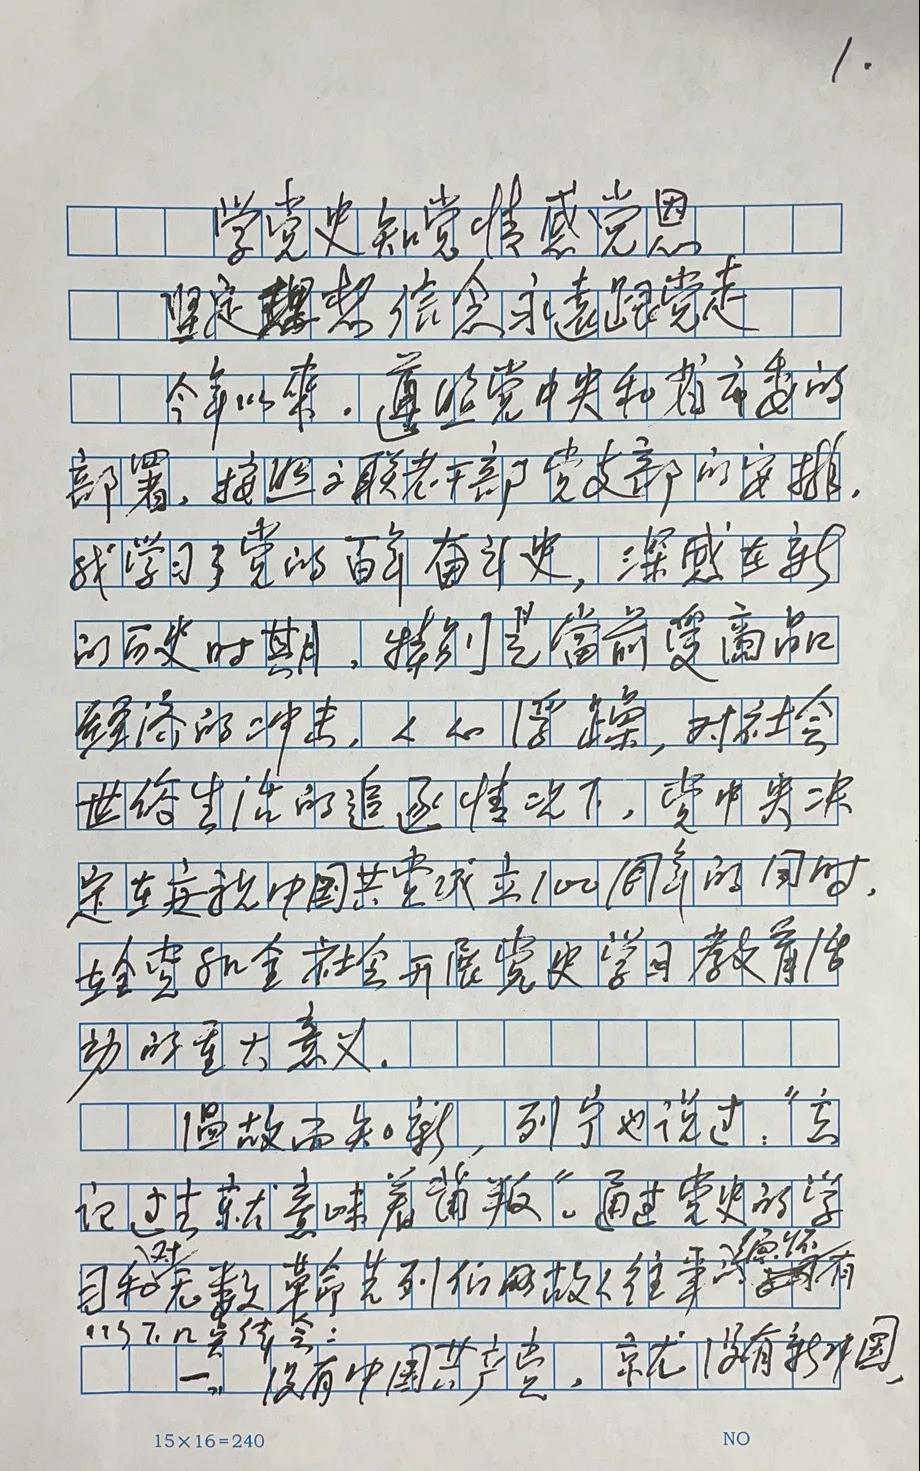 1.
学党史知党情感党恩
坚定理想信念永远跟党走
今年以来，遵照党中央和省市委的
部署，按照文联老干部党支部的安排，
我学习了党的百年奋斗史，深感在新
的历史时期，特别是当前受商品
经济的冲击，人心浮躁，对社会
世俗生活的追逐情况下，党中央决
定在庆祝中国共产党成立100周年的同时，
在全党和全社会开展党史学习教育活
动的重大意义。
温故而知新，列宁也说过："忘
记过去就意味着背叛"。通过党史的学
习和对无数革命先烈们的故人往事的缅怀有
以下几点体会：
一、没有中国共产党，就没有新中国，
15×16=240 NO